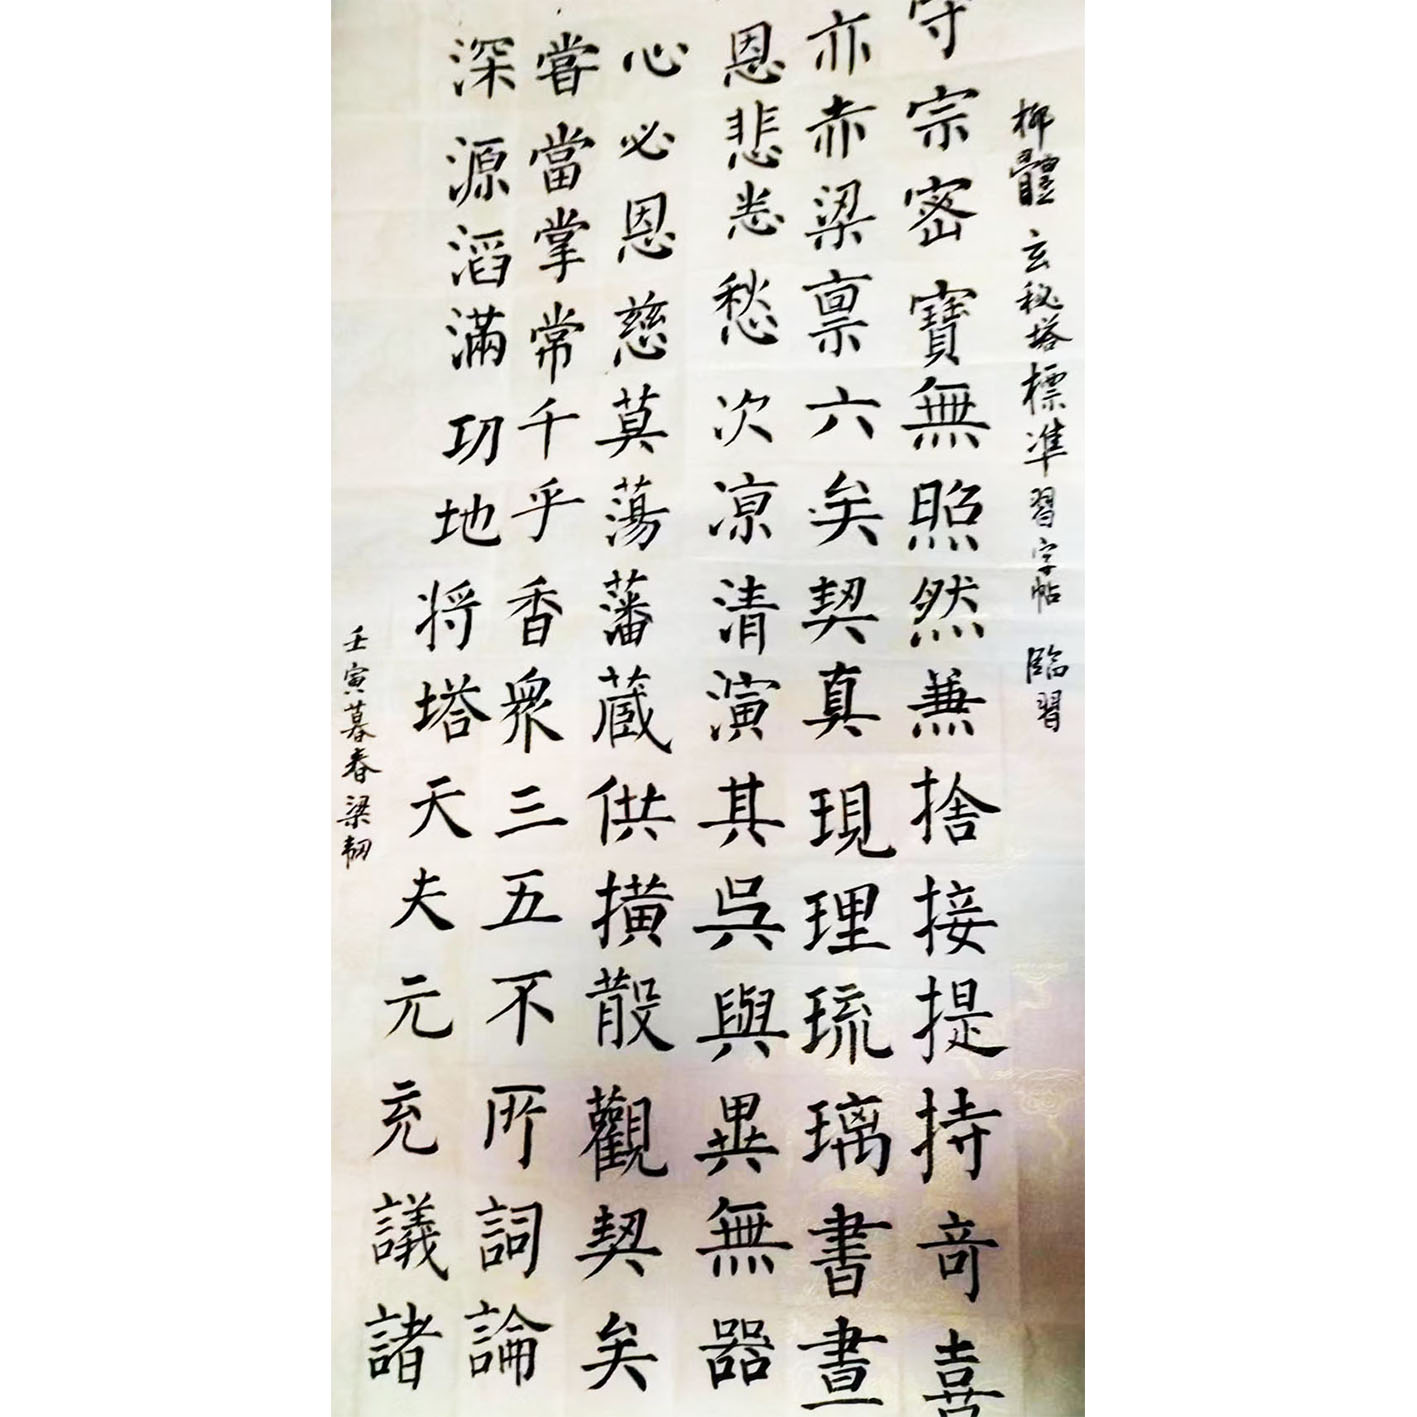 柳體 玄秘塔標準習字帖 臨習
守宗密寶無照然無捨接提持奇喜
亦赤梁禀六矣契真現理琉璃書晝
恩悲恙愁次凉清演其吳與異無器
心必恩慈莫蕩藩蔵供撗散觀契矣
嘗當掌常千乎香眾三五不所詞論
深源滔滿功地将塔天夫元充議諸
壬寅暮春梁韧